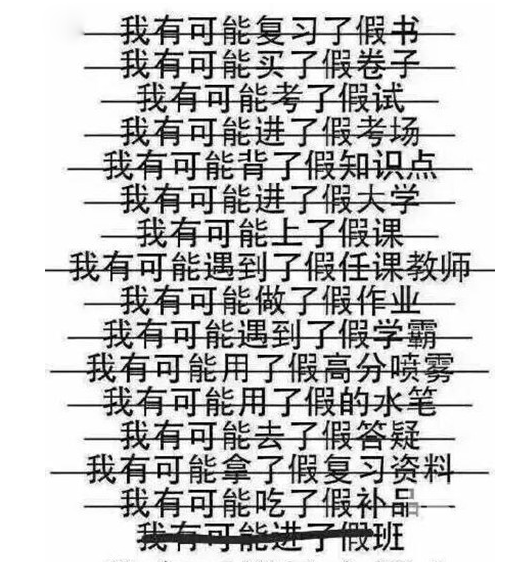 我有可能复习了假书
我有可能买了假卷子
我有可能考了假试
我有可能进了假考场
我有可能背了假知识点
我有可能进了假大学
我有可能上了假课
我有可能遇到了假任课教师
我有可能做了假作业
我有可能遇到了假学霸
我有可能用了假高分喷雾
我有可能用了假的水笔
我有可能去了假答疑
我有可能拿了假复习资料
我有可能吃了假补品
我有可能进了假班